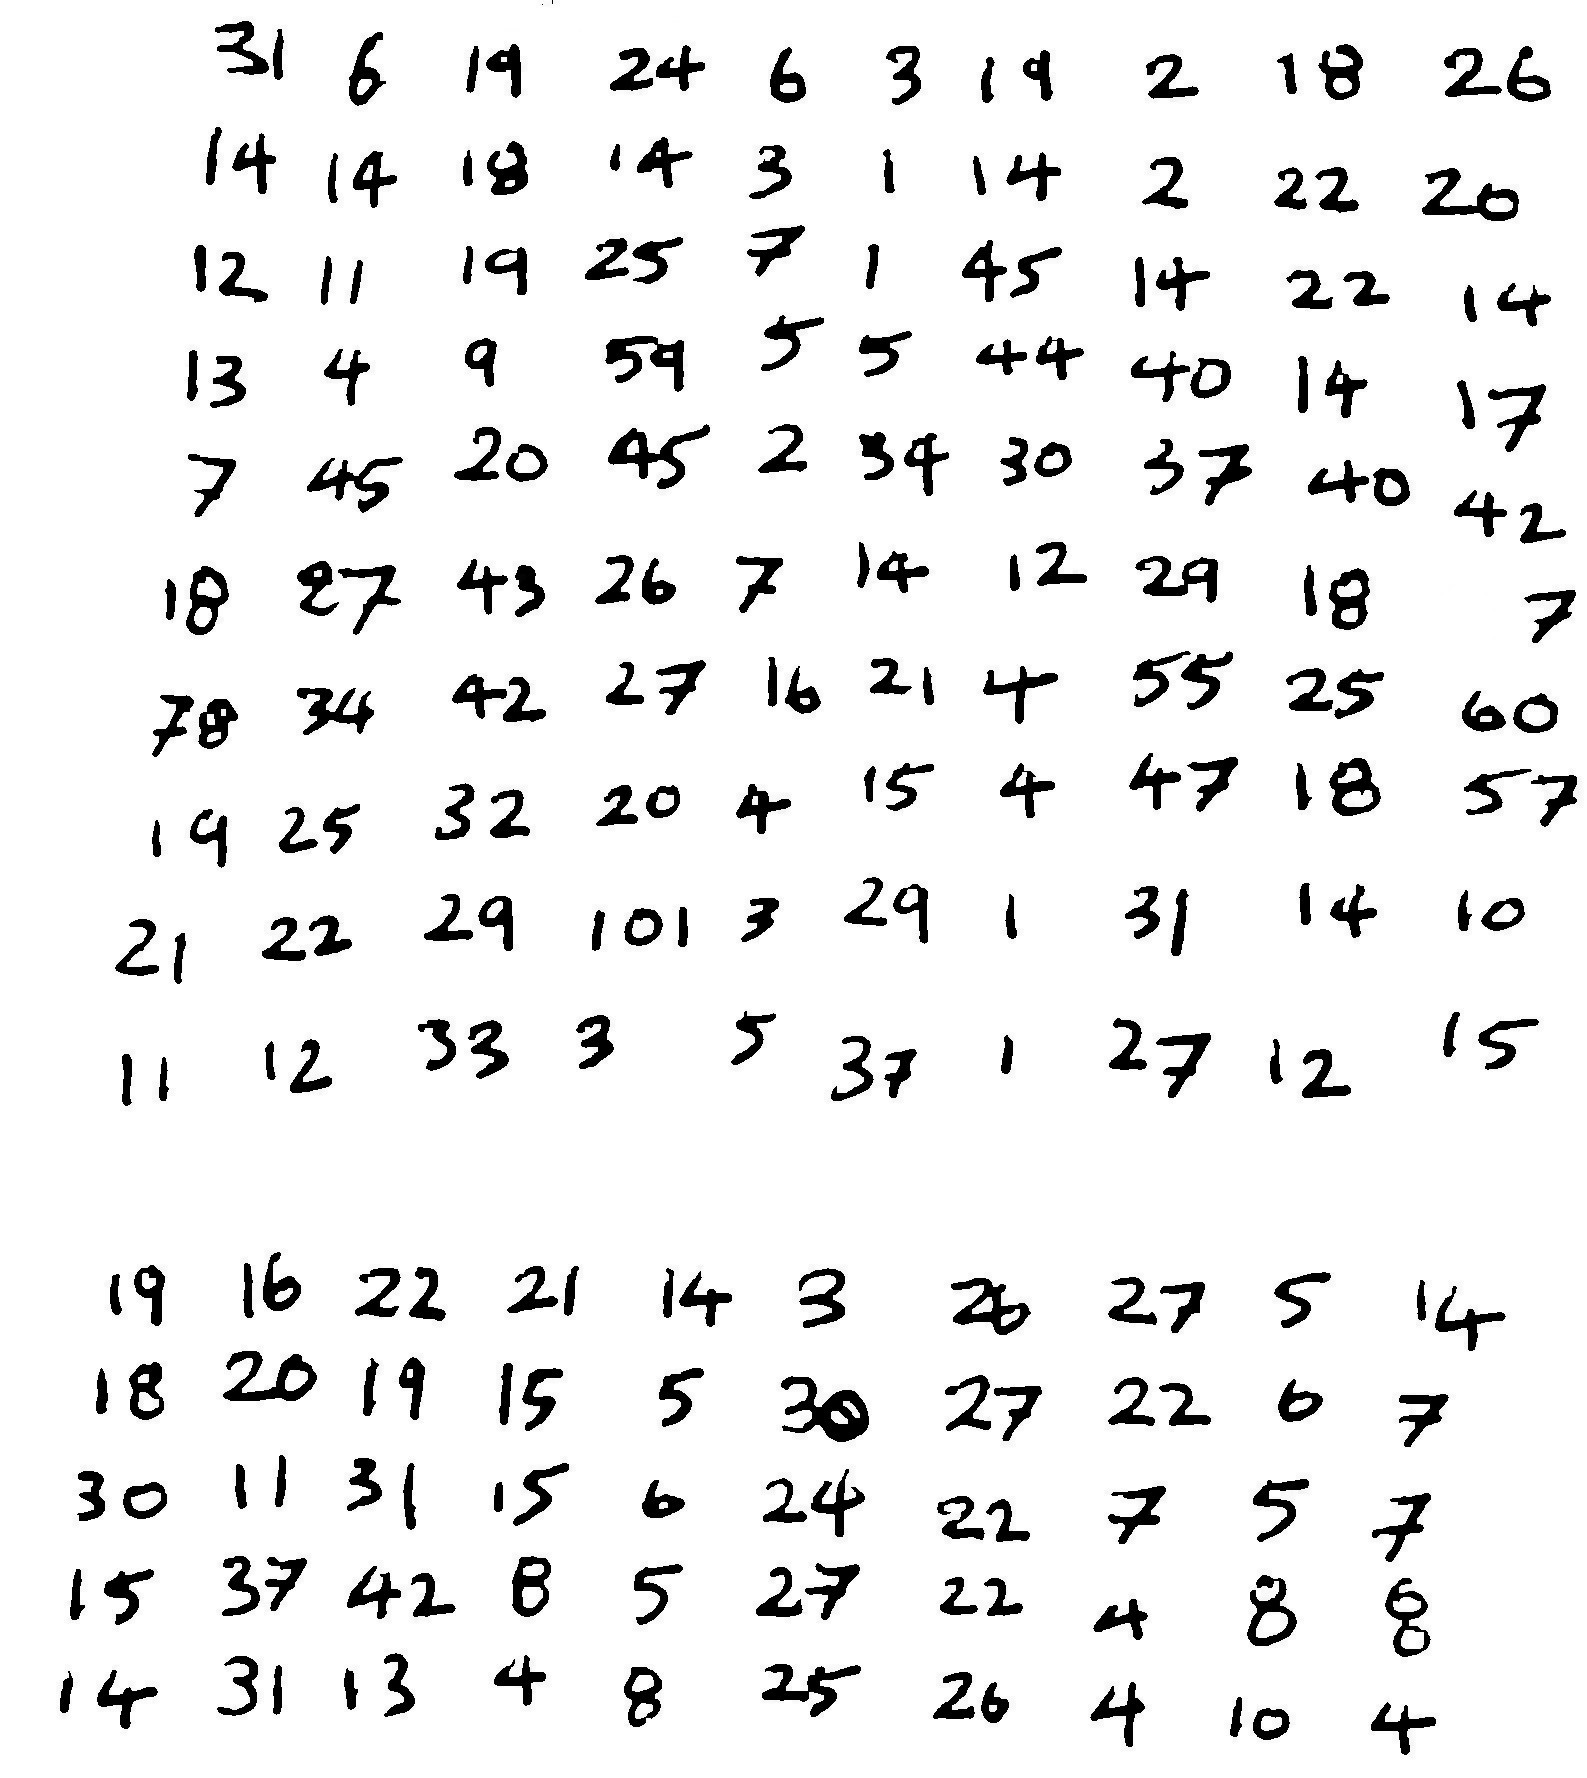 31 6 19 24 6 3 19 2 18 26
14 14 18 14 3 1 14 2 22 20
12 11 19 25 7 1 45 14 22 14
13 4 9 59 5 5 44 40 14 17
7 45 20 45 2 34 30 37 40 42
18 27 43 26 7 14 12 29 18 7
78 34 42 27 16 21 4 55 25 60
19 25 32 20 4 15 4 47 18 57
21 22 29 101 3 29 1 31 14 10
11 12 33 3 5 37 1 27 12 15
19 16 22 21 14 3 26 27 5 14
18 20 19 15 5 30 27 22 6 7
30 11 31 15 6 24 22 7 5 7
15 37 42 8 5 27 22 4 8 8
14 31 13 4 8 25 26 4 10 4